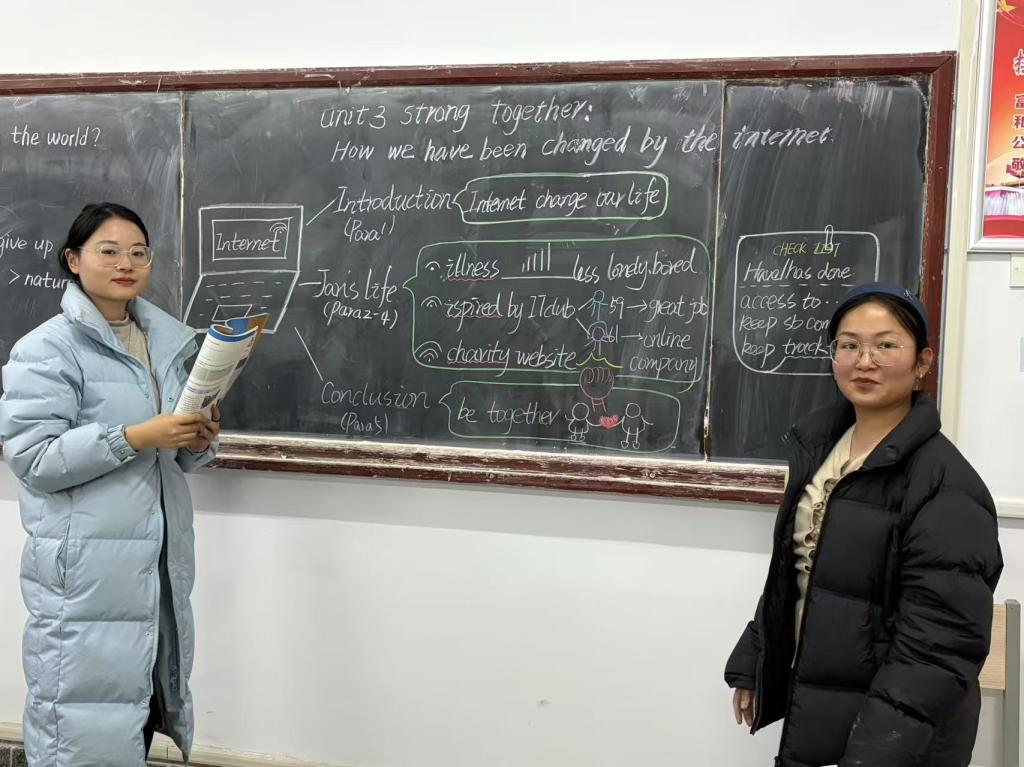 the world?
give up
> natur
unit 3 strong together:
How we have been changed by the internet.
Internet
Introduction
(Para 1)
Internet change our life
Jan's life
(Para 2-4)
illness
less lonely, bored
ispired by IT club
59 → great job
61 → online
charity website
company
Conclusion
(Para 5)
be together
CHECK LIST
Have/has done
access to...
keep sb com
keep track
富
和
公
敬